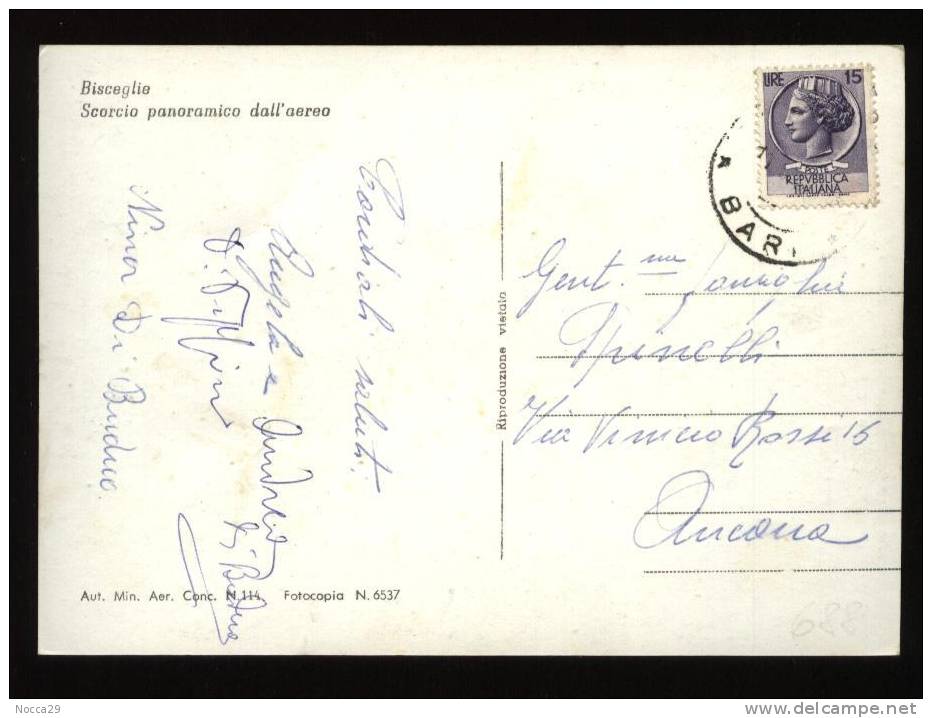 Bisceglie
Scorcio panoramico dall'aereo
Cordiali saluti.
Angela e Andrea
di Buduo
Nino Di Buduo
Aut. Min. Aer. Conc. N.114. Fotocopia N.6537
Riproduzione vietata
LIRE 15
POSTE
REPVBBLICA
ITALIANA
BARI
Gent.me
Spinelli
Via Vinicio Rossi 15
Ancona
688
Nocca29
http://www.delcampe.net